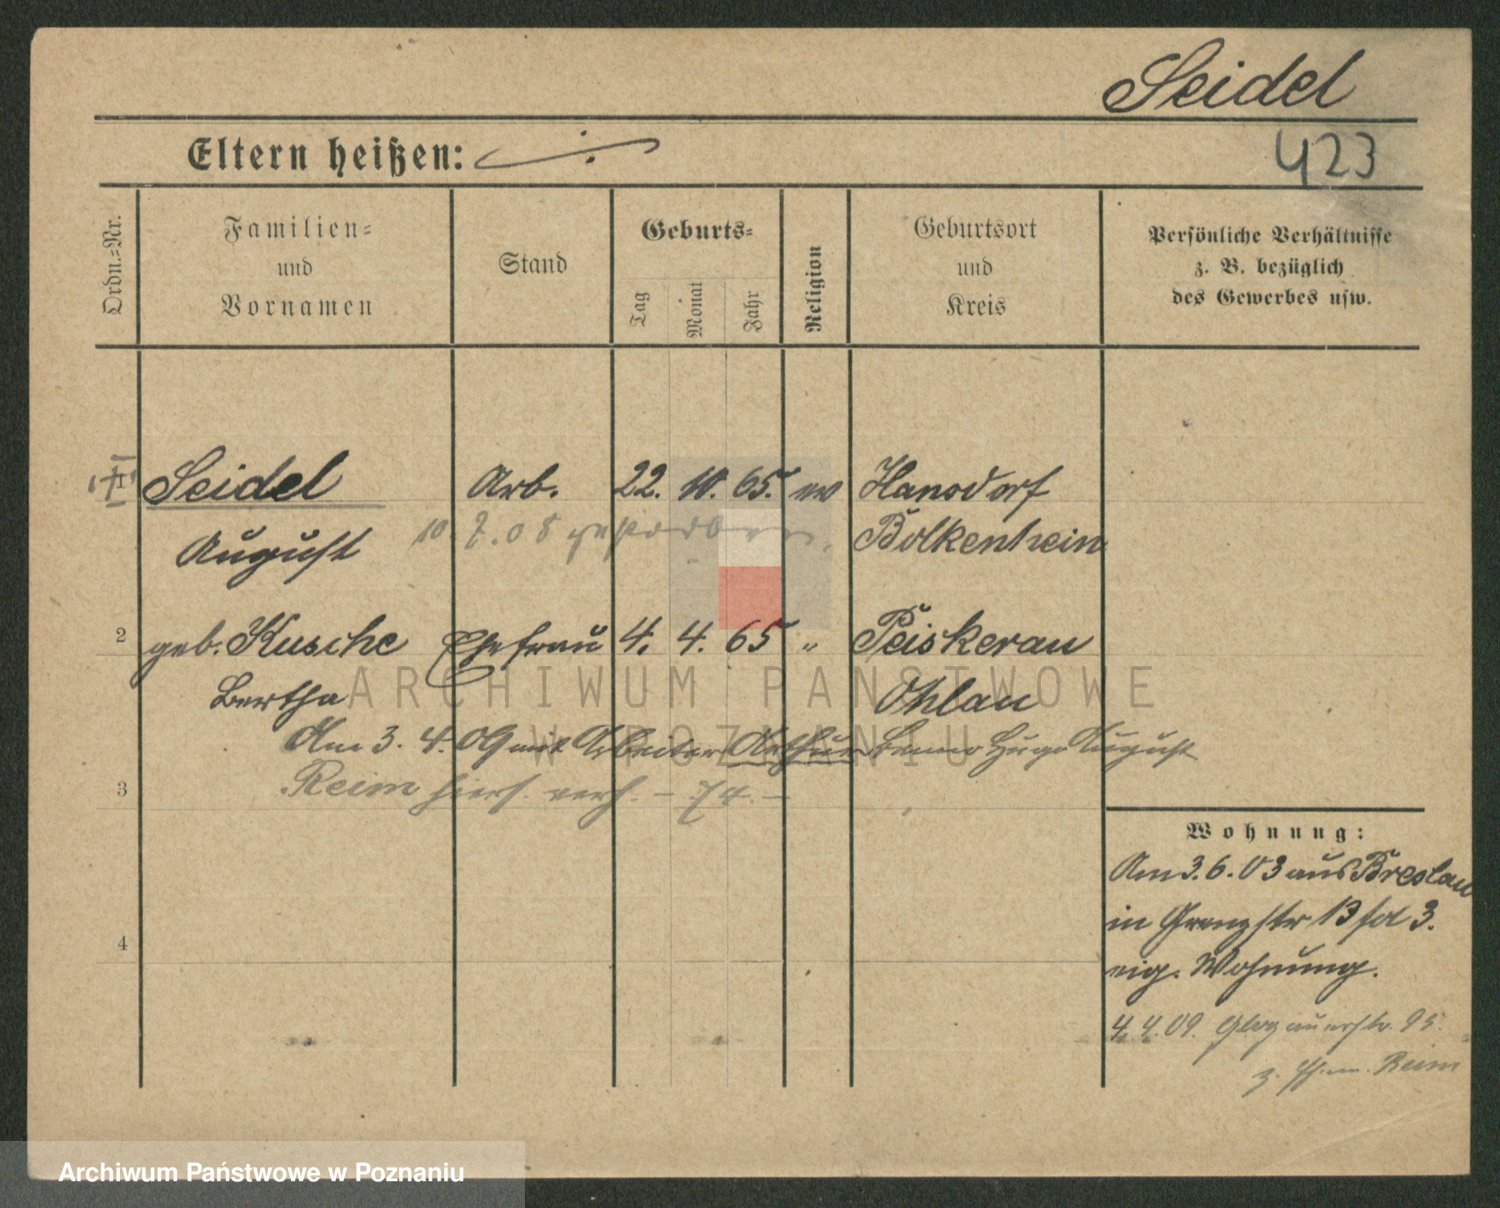 Seidel
423
Eltern heißen: ./.
Ordn.-Nr.
Familien-
und
Vornamen
Stand
Geburts-
Tag
Monat
Jahr
Religion
Geburtsort
und
Kreis
Persönliche Verhältnisse
z. B. bezüglich
des Gewerbes usw.
Seidel Arb. 22. 10. 65. ev Hansdorf
August 10. 7. 08 gestorben. Bolkenhein
2 geb. Kusche Ehefrau 4. 4. 65 " Peiskerau
Bertha Ohlau
Am 3. 4. 09 mit Arbeiter Arthur Benno Hugo August
3 Reim hiers. verh. - 74. -
4
Wohnung:
Am 3. 6. 03 aus Breslau
in Grenzstr 13 seit 3.
eig. Wohnung.
4. 4. 09. Glogauerstr. 95.
z. Ehem. Reim
ARCHIWUM PAŃSTWOWE
W POZNANIU
Archiwum Państwowe w Poznaniu